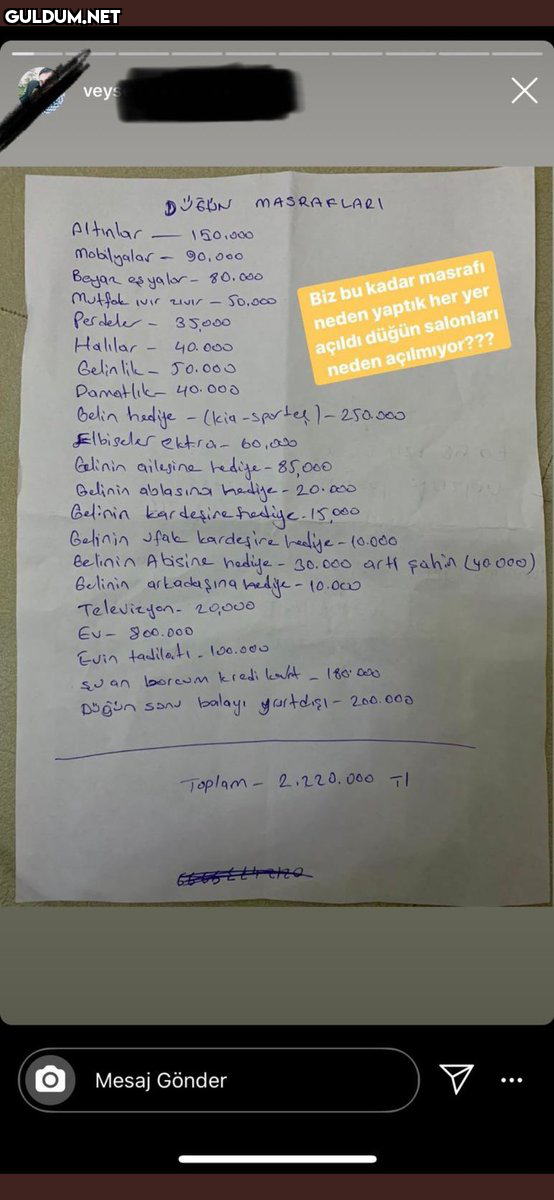 GULDUM.NET
veys
DÜĞÜN MASRAFLARI
Altınlar — 150.000
Mobilyalar - 90,000
Beyaz eşyalar - 80.000
Mutfak ıvır zıvır - 50,000
Perdeler - 35,000
Halılar - 40.000
Gelinlik - 50.000
Damatlık - 40.000
Gelin hediye - (kia-sporteş) - 250.000
Elbiseler ektra - 60,000
Gelinin ailesine hediye - 85,000
Gelinin ablasına hediye - 20.000
Gelinin kardeşine hediye - 15,000
Gelinin ufak kardeşine hediye - 10.000
Gelinin Abisine hediye - 30.000 artı şahin (40.000)
Gelinin arkadaşına hediye - 10.000
Televizyon - 20,000
Ev - 800.000
Evin tadilatı - 100.000
şu an borcum kredi kartı - 180.000
Düğün sonu balayı yurtdışı - 200.000
Toplam - 2.220.000 Tl
Biz bu kadar masrafı
neden yaptık her yer
açıldı düğün salonları
neden açılmıyor???
Mesaj Gönder